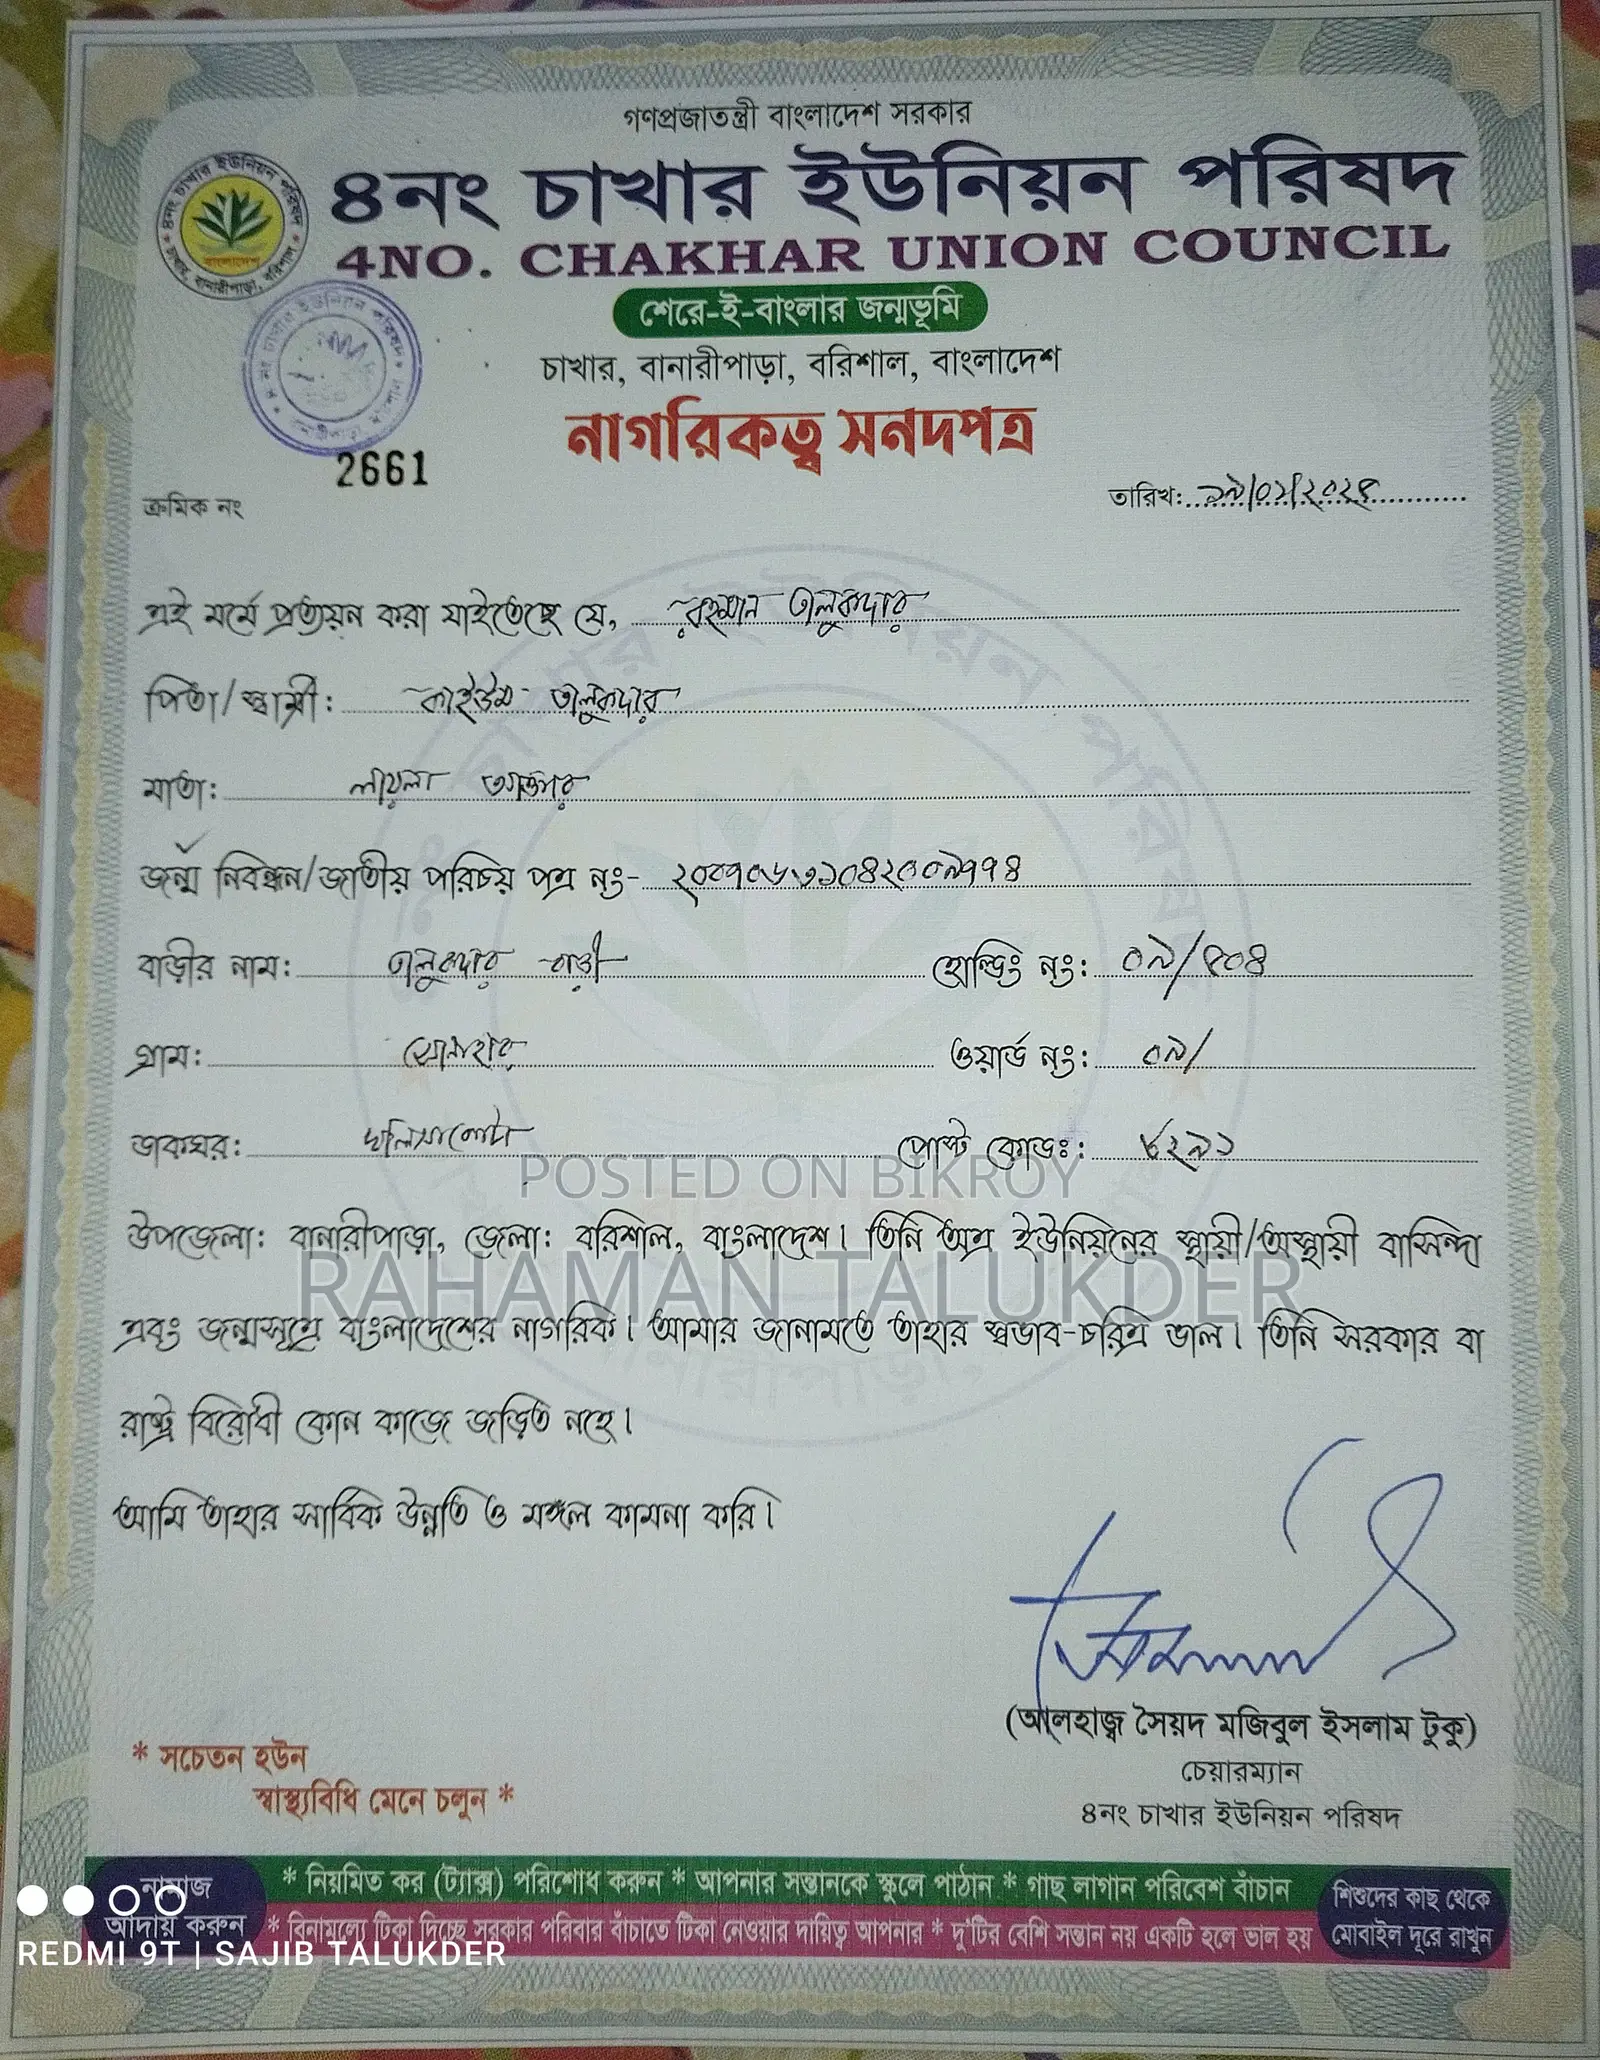 গণপ্রজাতন্ত্রী বাংলাদেশ সরকার
৪নং চাখার ইউনিয়ন পরিষদ
4NO. CHAKHAR UNION COUNCIL
শেরে-ই-বাংলার জন্মভূমি
চাখার, বানারীপাড়া, বরিশাল, বাংলাদেশ
নাগরিকত্ব সনদপত্র
৪নং চাখার ইউনিয়ন পরিষদ
বাংলাদেশ
চাখার, বানারীপাড়া, বরিশাল
2661
ক্রমিক নং
তারিখ:
এই মর্মে প্রত্যয়ন করা যাইতেছে যে, রহমান তালুকদার
পিতা/স্বামী: কাইউম তালুকদার
মাতা: লায়লা আক্তার
জন্ম নিবন্ধন/জাতীয় পরিচয় পত্র নং-
বাড়ীর নাম: তালুকদার বাড়ী হোল্ডিং নং: ০৯/৫০৪
গ্রাম: সোনাহার ওয়ার্ড নং: ০৯/
ডাকঘর: পোস্ট কোডঃ:
উপজেলা: বানারীপাড়া, জেলা: বরিশাল, বাংলাদেশ। তিনি অত্র ইউনিয়নের স্থায়ী/অস্থায়ী বাসিন্দা
এবং জন্মসূত্রে বাংলাদেশের নাগরিক। আমার জানামতে তাহার স্বভাব-চরিত্র ভাল। তিনি সরকার বা
রাষ্ট্র বিরোধী কোন কাজে জড়িত নহে।
আমি তাহার সার্বিক উন্নতি ও মঙ্গল কামনা করি।
POSTED ON BIKROY
RAHAMAN TALUKDER
(আলহাজ্ব সৈয়দ মজিবুল ইসলাম টুকু)
চেয়ারম্যান
৪নং চাখার ইউনিয়ন পরিষদ
* সচেতন হউন
স্বাস্থ্যবিধি মেনে চলুন *
নামাজ
আদায় করুন
* নিয়মিত কর (ট্যাক্স) পরিশোধ করুন * আপনার সন্তানকে স্কুলে পাঠান * গাছ লাগান পরিবেশ বাঁচান
* বিনামূল্যে টিকা দিচ্ছে সরকার পরিবার বাঁচাতে টিকা নেওয়ার দায়িত্ব আপনার * দু'টির বেশি সন্তান নয় একটি হলে ভাল হয়
শিশুদের কাছ থেকে
মোবাইল দূরে রাখুন
REDMI 9T | SAJIB TALUKDER